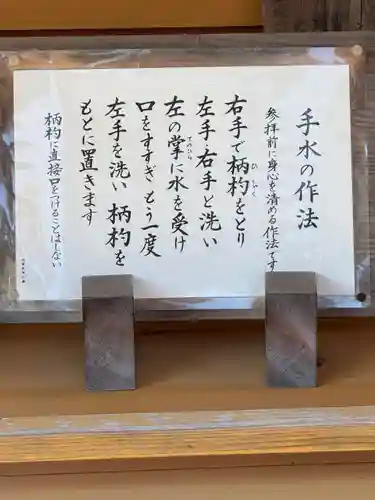 手水の作法
参拝前に身心を清める作法です
右手で柄杓をとり
ひしゃく
左手・右手と洗い
左の掌に水を受け
てのひら
口をすすぎ もう一度
左手を洗い 柄杓を
もとに置きます
柄杓に直接口をつけることはしない